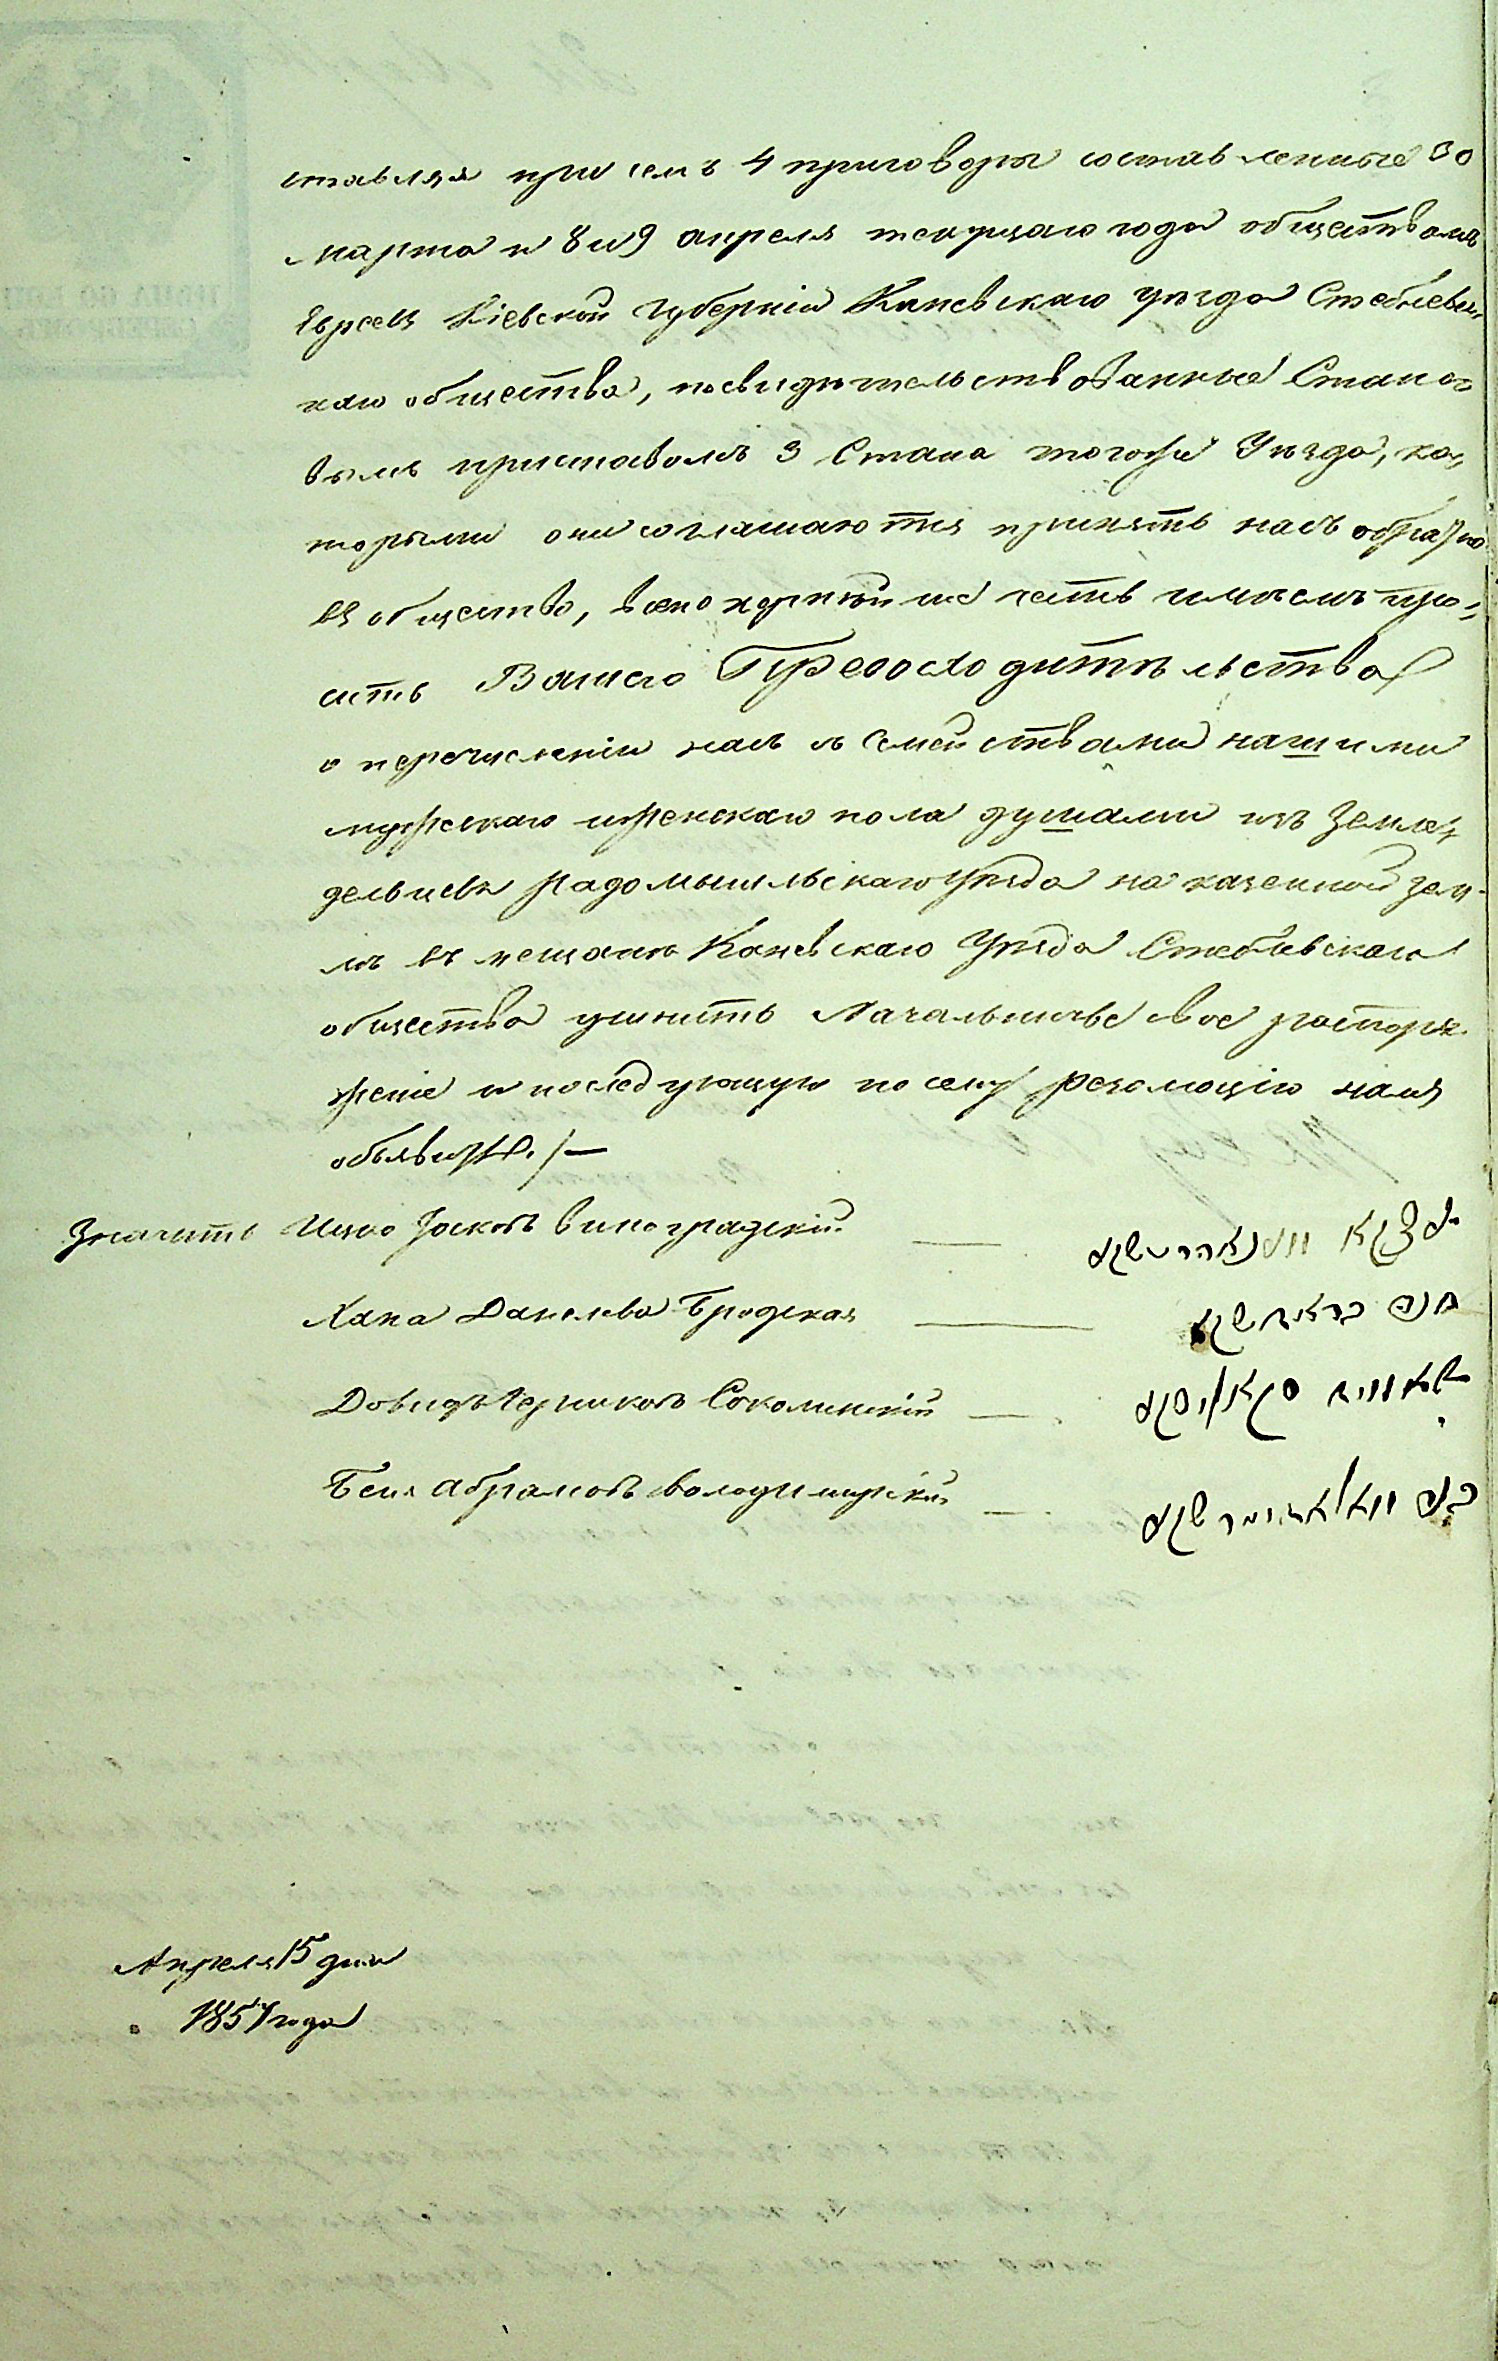 ставляя при семъ 4 приговоры составленные 30
марта и 8 и 9 апреля текущаго года обществомъ
Евреевъ Кіевской Губерніи Каневскаго уезда Стеблевс-
каго общества, посвидѣтельствованные Стано-
вымъ приставомъ 3 Стана тогожъ Уѣзда, ко-
торыми они соглашаются принять насъ обратно
въ общество, всепокорнѣйше честь имѣемъ про-
сить Вашего Превосходительства
о перечисленіи насъ съ Семействами нашими
мужескаго и женскаго пола душами изъ Земле-
дельцевъ Радомышльскаго Уѣзда на казенной зем-
лѣ въ мещане Каневскаго Уѣзда Стеблевскаго
общества учинить Начальничье свое распоря-
женіе и последующую по сему резолюцію намъ
объявить. /—
Значитъ Ицко Іосковъ Виноградскій
יצקא ווינאגראדשקי
Хана Данелева Бродская
חנה בראדשקא
Довидъ Берковъ Соколинскій
דאוויד סקאליסקי
Беня Абрамовъ Володимирскій
בני וואלאדימרשקי
Апреля 15 дня
1857 года